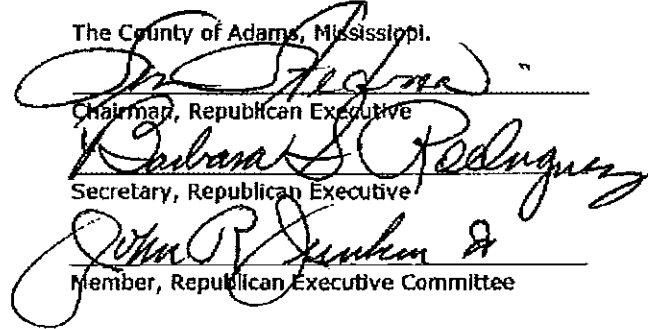 The County of Adams, Mississippi.
Chairman, Republican Executive
Barbara S Rodriguez
Secretary, Republican Executive
John R Junkin
Member, Republican Executive Committee